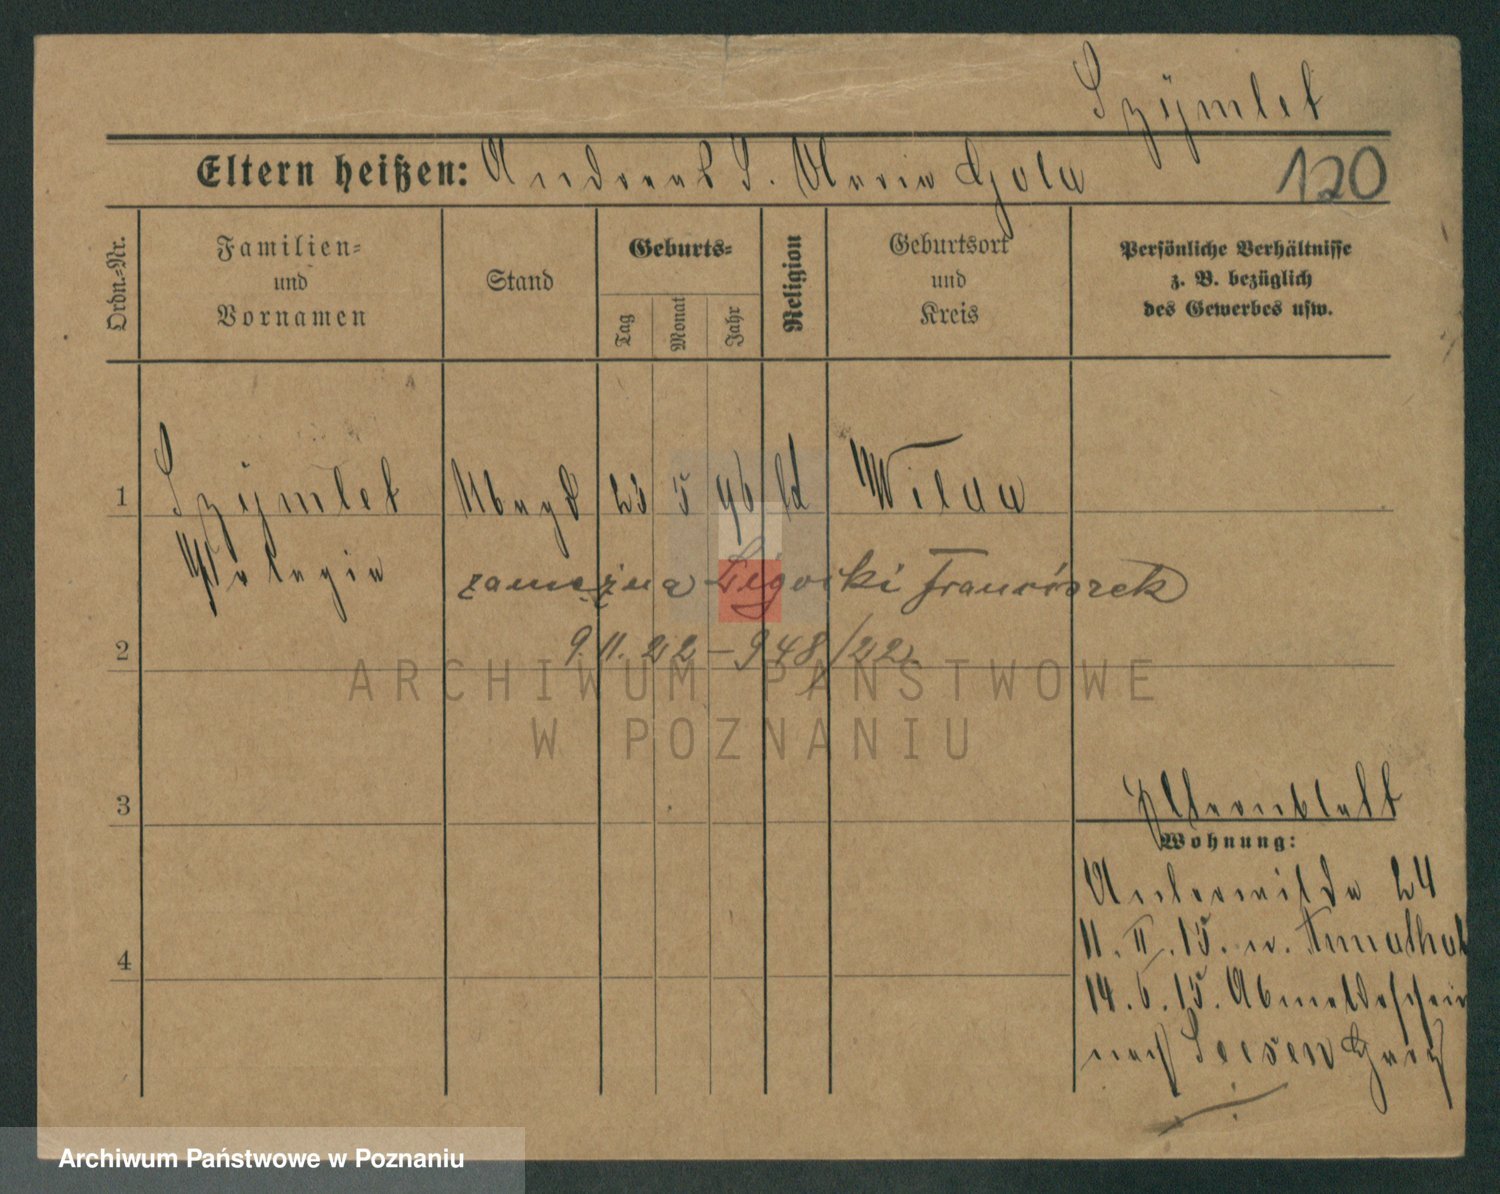 Szÿmlet
Eltern heißen: Andreas S. Maria Gola
120
Ordn.-Nr.
Familien-
und
Vornamen
Stand
Geburts-
Tag
Monat
Jahr
Religion
Geburtsort
und
Kreis
Persönliche Verhältnisse
z. B. bezüglich
des Gewerbes usw.
1 Szÿmlet Magd 23 5 96 kt Wilda
Pelagia
zamężna Ligocki Franciszek
2
9.11.22 – 948/22
ARCHIWUM PAŃSTWOWE
W POZNANIU
3
Elternblatt
Wohnung:
Unterwilda 24
11.II.15. n.
4
14.6.15. Abmeldeschein
nach Seesen Harz
Archiwum Państwowe w Poznaniu